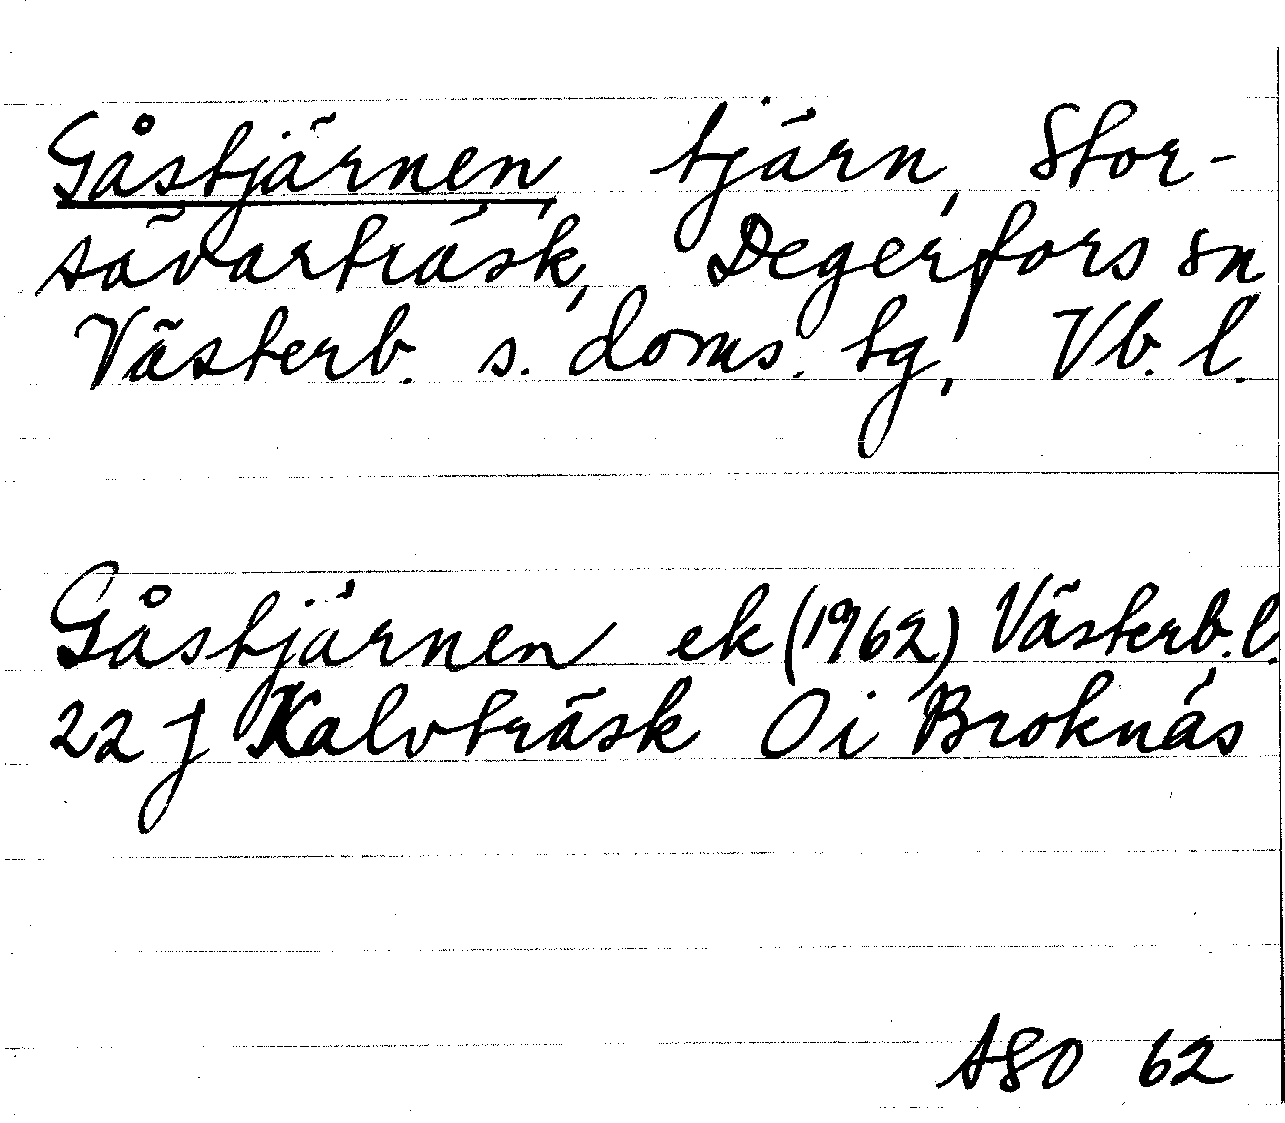 Gåstjärnen, tjärn, Stor-
sävarträsk, Degerfors sn
Västerb. s. doms. tg, Vb. l.
Gåstjärnen ek (1962) Västerb. l.
22 J Kalvträsk Oi Broknäs
ASO 62